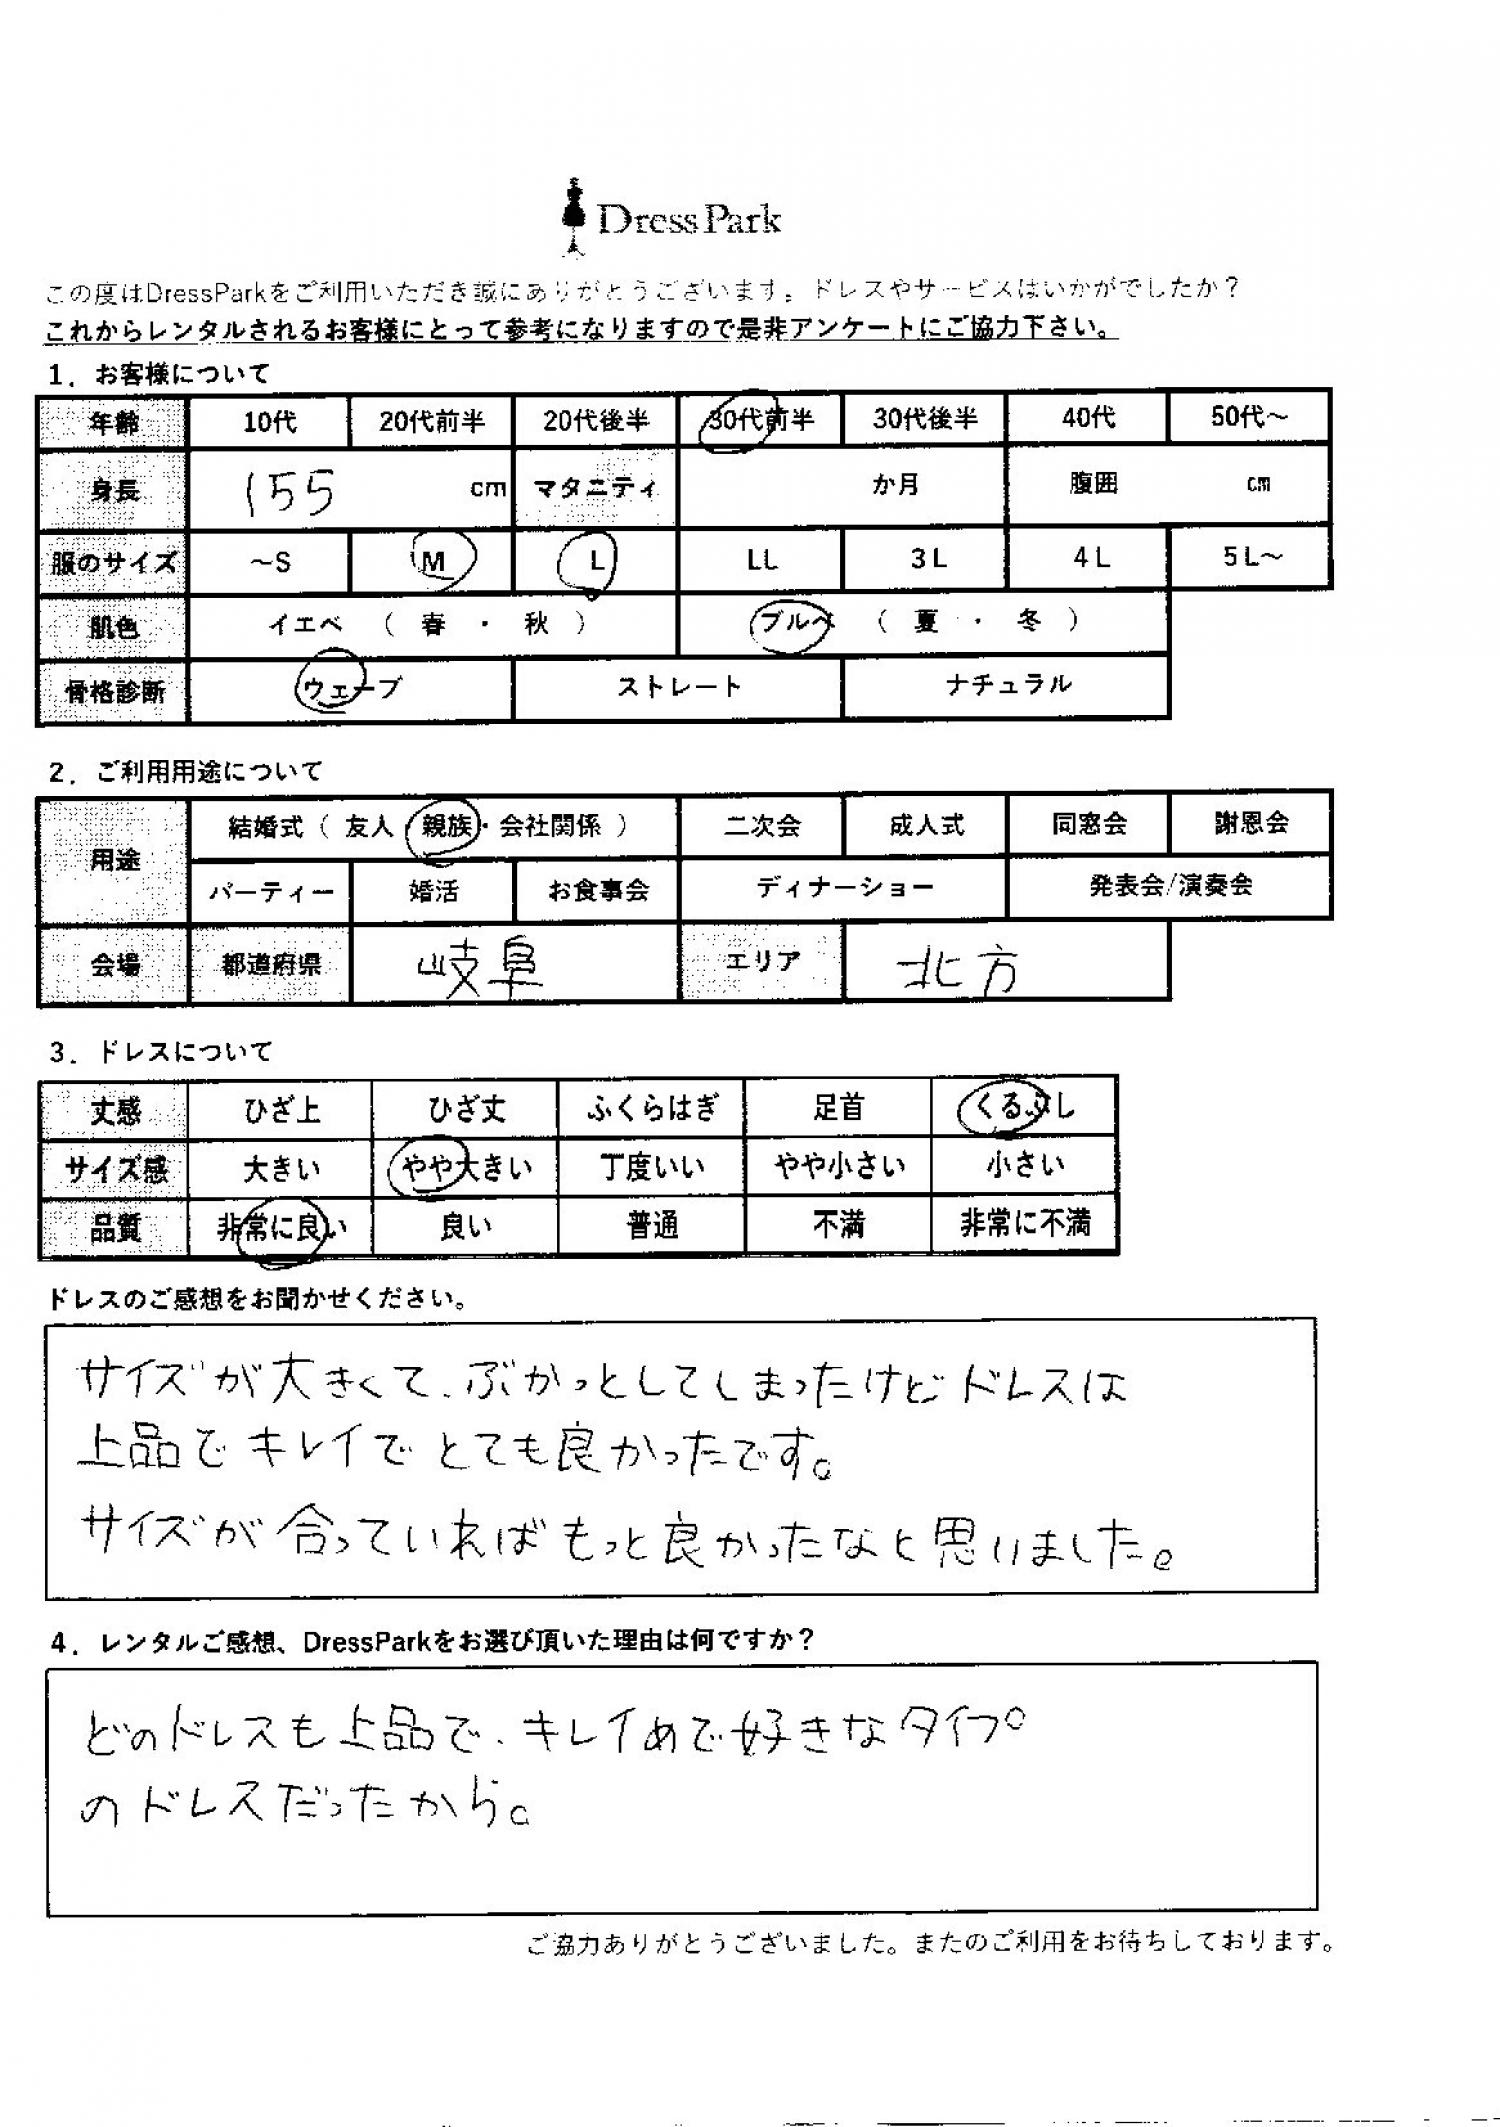 DressPark
この度はDressParkをご利用いただき誠にありがとうございます。ドレスやサービスはいかがでしたか？
これからレンタルされるお客様にとって参考になりますので是非アンケートにご協力下さい。
1．お客様について
年齢 10代 20代前半 20代後半 30代前半 30代後半 40代 50代～
身長 155 cm マタニティ か月 腹囲 cm
服のサイズ ～S M L LL 3L 4L 5L～
肌色 イエベ （ 春 ・ 秋 ） ブルベ （ 夏 ・ 冬 ）
骨格診断 ウェーブ ストレート ナチュラル
2．ご利用用途について
用途 結婚式（ 友人・親族・会社関係 ） 二次会 成人式 同窓会 謝恩会
パーティー 婚活 お食事会 ディナーショー 発表会/演奏会
会場 都道府県 岐阜 エリア 北方
3．ドレスについて
丈感 ひざ上 ひざ丈 ふくらはぎ 足首 くるぶし
サイズ感 大きい やや大きい 丁度いい やや小さい 小さい
品質 非常に良い 良い 普通 不満 非常に不満
ドレスのご感想をお聞かせください。
サイズが大きくて、ぶかっとしてしまったけどドレスは
上品でキレイでとても良かったです。
サイズが合っていればもっと良かったなと思いました。
4．レンタルご感想、DressParkをお選び頂いた理由は何ですか？
どのドレスも上品で、キレイめで好きなタイプ
のドレスだったから。
ご協力ありがとうございました。またのご利用をお待ちしております。